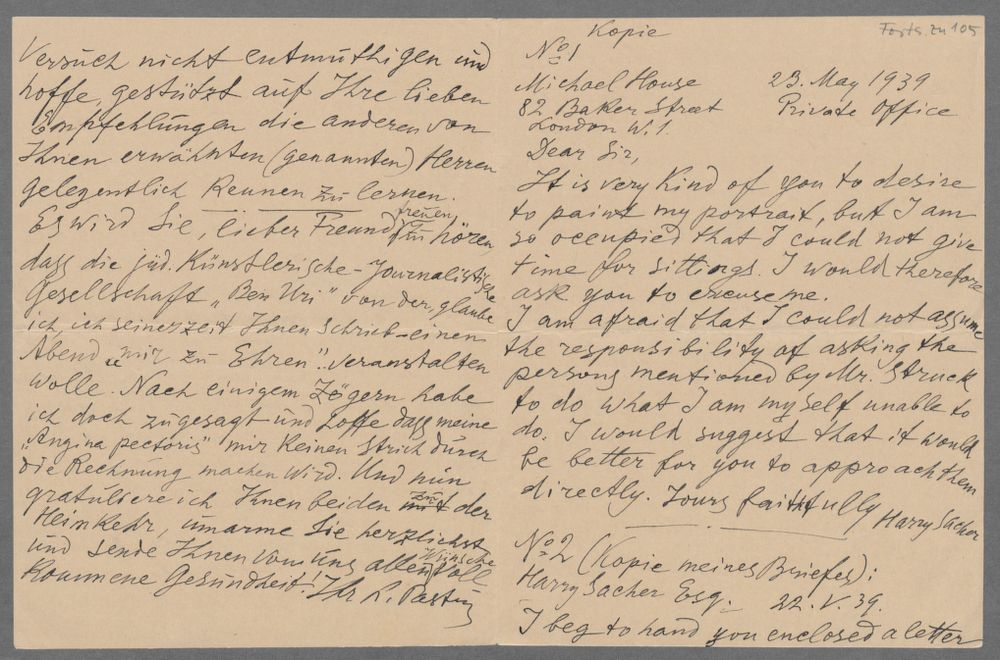 Versuch nicht entmuthigen und
hoffe, gestützt auf Ihre lieben
Empfehlungen die anderen von
Ihnen erwähnten (genannten) Herren
gelegentlich kennen zu lernen.
Es wird Sie, lieber Freund freuen zu hören,
dass die jüd. Künstlerische-Journalistische
Gesellschaft „Ben Uri" von der, glaube
ich, ich seinerzeit Ihnen schrieb – einen
Abend „mir zu Ehren" veranstalten
wolle. Nach einigem Zögern habe
ich doch zugesagt und hoffe dass meine
„Angina pectoris" mir keinen Strich durch
die Rechnung machen wird. Und nun
gratuliere ich Ihnen beiden zu der
Heimkehr, umarme Sie herzlichst
und sende Ihnen von uns allen Wünsche voll
kommene Gesundheit! Ihr L. Pasternak
Forts. zu 105
Kopie
No 1
Michael House 23. May 1939
82 Baker Street Private Office
London W.1.
Dear Sir,
It is very kind of you to desire
to paint my portrait, but I am
so occupied that I could not give
time for sittings. I would therefore
ask you to excuse me.
I am afraid that I could not assume
the responsibility of asking the
persons mentioned by Mr. Struck
to do what I am myself unable to
do. I would suggest that it would
be better for you to approach them
directly. Yours faithfully Harry Sacher
No 2 (Kopie meines Briefes):
Harry Sacher Esq. 22. V. 39.
I beg to hand you enclosed a letter